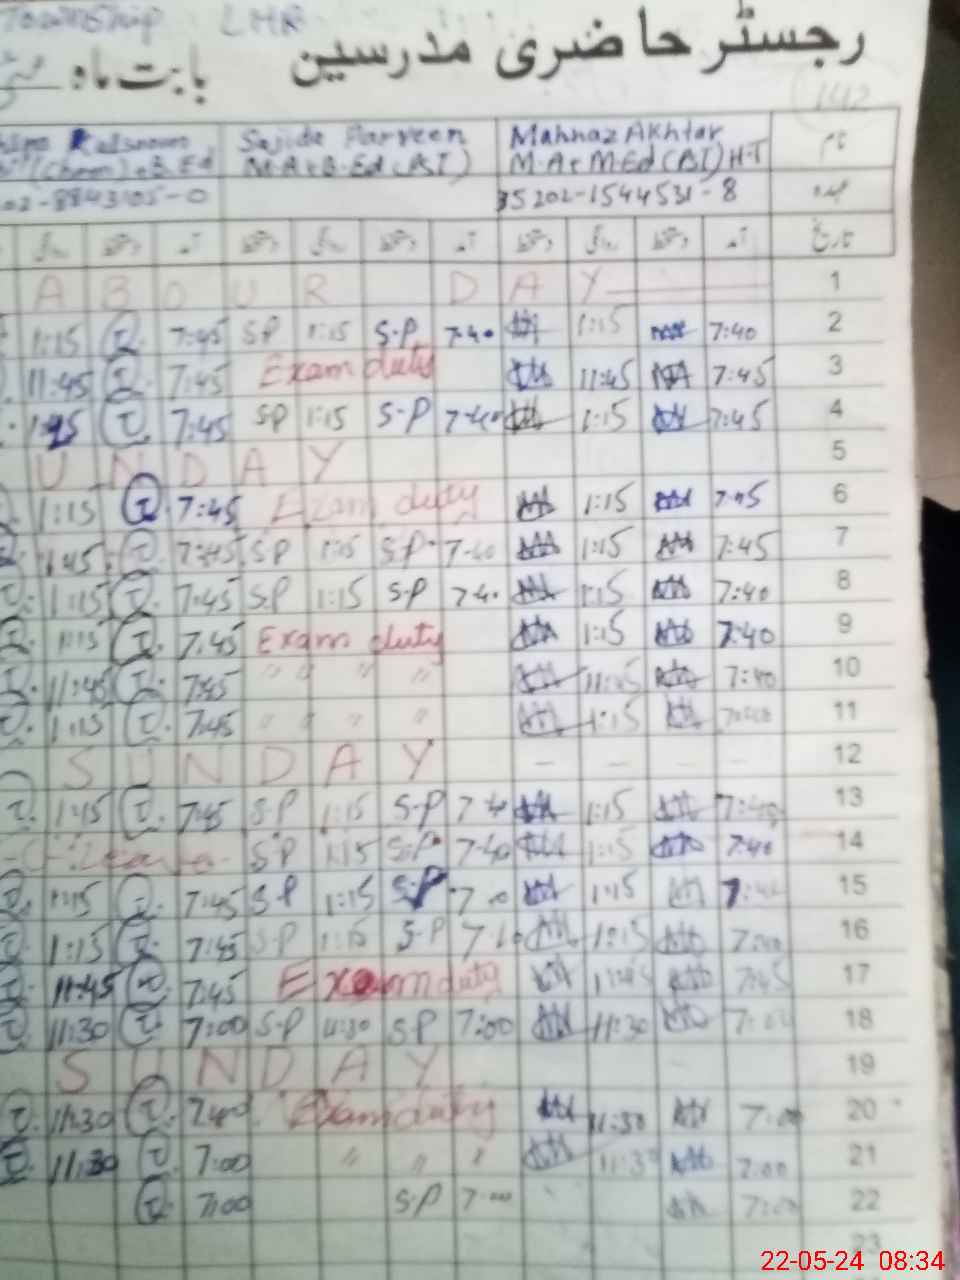 Township LHR
رجسٹر حاضری مدرسین بابت ماہ
142
Kulsoom Sajida Parveen Mahnaz Akhtar نام
(Chem)+B.Ed M.A+B.Ed(A.I) M.A+M.Ed(A.I) H.T
02-8843105-0 35202-1544531-8 عہدہ
روانگی دستخط آمد دستخط روانگی دستخط آمد دستخط روانگی دستخط آمد تاریخ
A B O U R D A Y 1
1:15 7:45 S.P 1:15 S.P 7:40 1:15 7:40 2
11:45 7:45 Exam duty 11:45 7:45 3
7:45 S.P 1:15 S.P 7:40 1:15 7:45 4
U N D A Y 5
1:15 7:45 Exam duty 1:15 7:45 6
1:45 7:45 S.P 1:15 S.P 7:40 1:15 7:45 7
1:15 7:45 S.P 1:15 S.P 7:40 1:15 7:40 8
1:15 7:45 Exam duty 1:15 7:40 9
11:45 7:45 " " " " 11:45 7:40 10
1:15 7:45 " " " " 1:15 11
S U N D A Y – – – – 12
1:15 7:45 S.P 1:15 S.P 7:40 1:15 7:40 13
Leave S.P 1:15 S.P 7:40 1:15 7:40 14
1:15 7:45 S.P 1:15 S.P 1:15 15
1:15 7:45 S.P 1:15 S.P 1:15 7:40 16
11:45 7:45 Exam duty 11:45 7:45 17
11:30 7:00 S.P 11:30 S.P 7:00 11:30 7:00 18
S U N D A Y 19
11:30 Exam duty 11:30 7:00 20
11:30 7:00 " " " 11:30 7:00 21
7:00 S.P 7:00 7:00 22
23
22-05-24 08:34